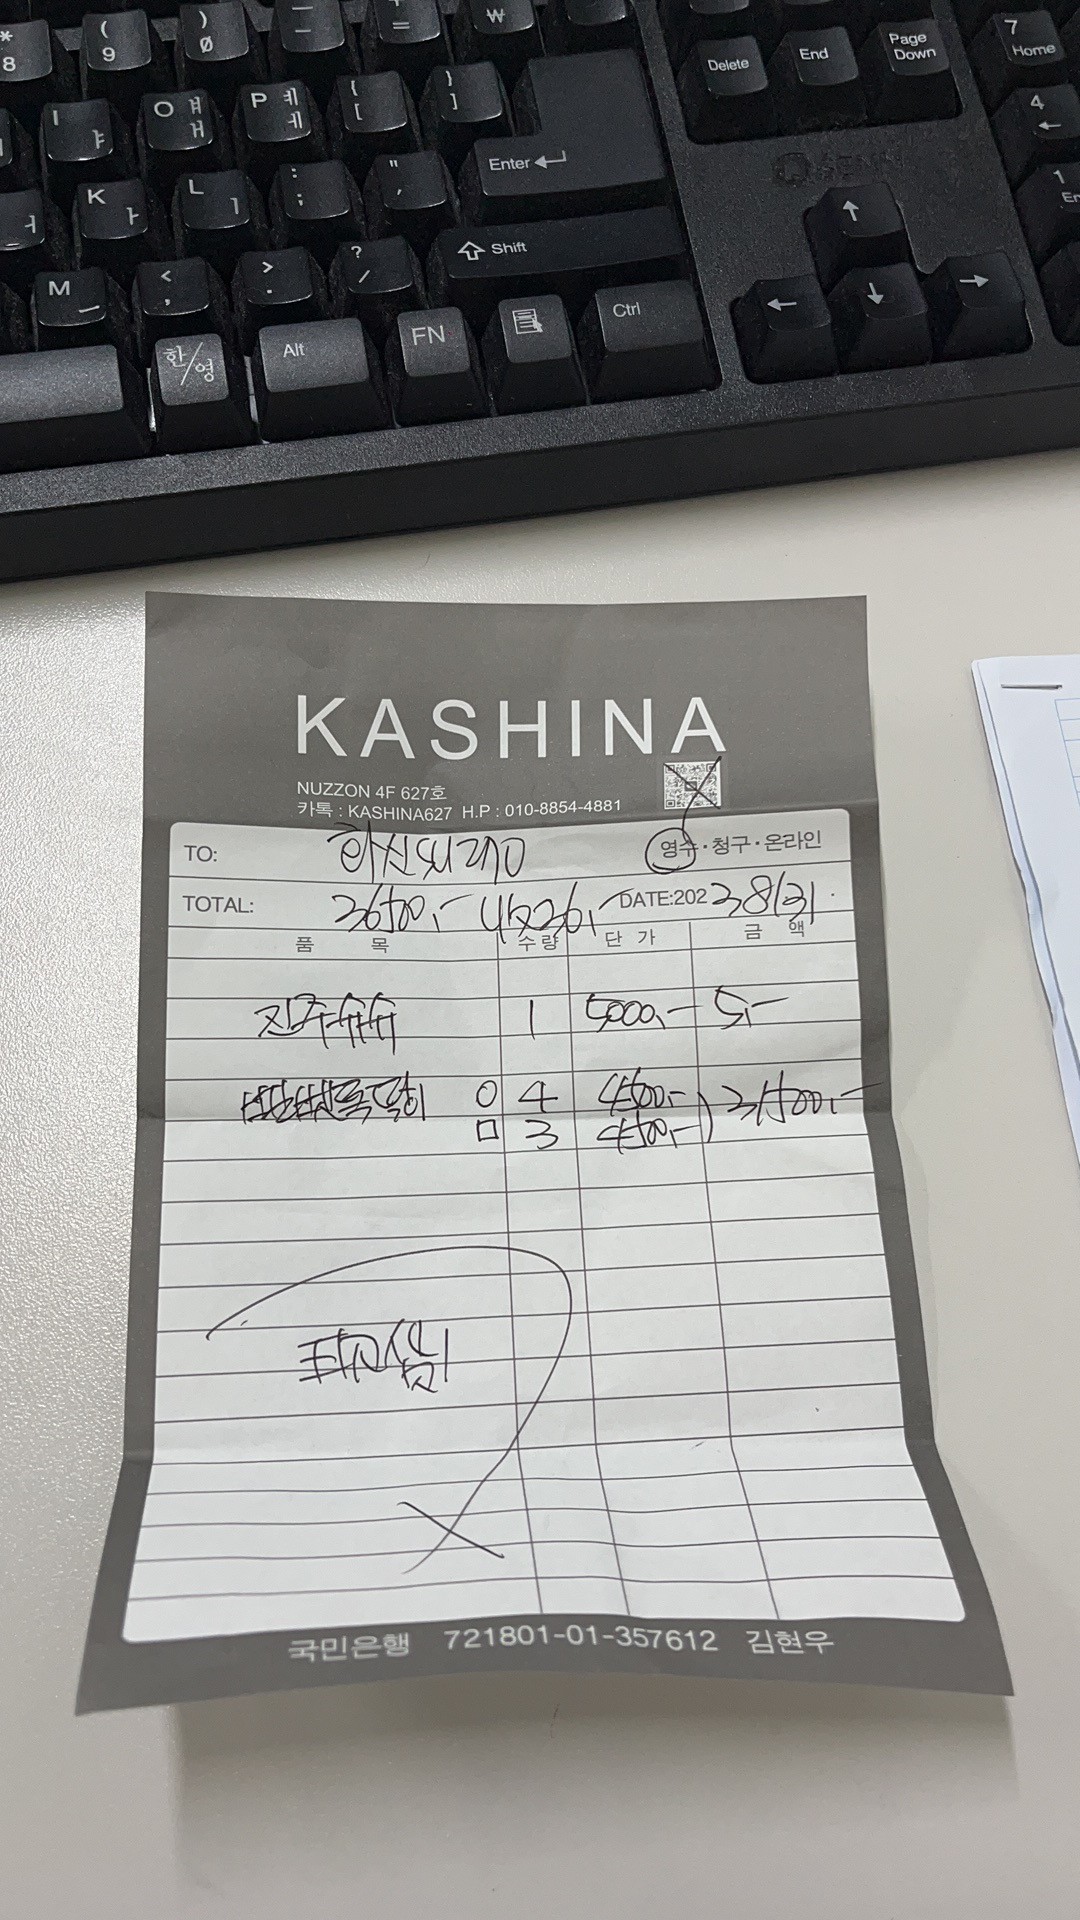 * 8 ( 9 ) 0 — - + = ₩
Delete End Page Down 7 Home
I ㅑ O ㅒ ㅐ P ㅖ ㅔ { [ } ]
Enter
4 ←
ㅓ K ㅏ L ㅣ : ; " '
1
M ㅡ < , > . ? / Shift
↑
한/영 Alt FN Ctrl
← ↓ →
KASHINA
NUZZON 4F 627호
카톡 : KASHINA627 H.P : 010-8854-4881
TO: 영수 · 청구 · 온라인
TOTAL: 36500,- DATE:2023 8/31
품 목 수 량 단 가 금 액
진주슈슈 1 5000,- 5,-
ㅇ 4 4500,-
31500,-
ㅁ 3 4500,-
국민은행 721801-01-357612 김현우